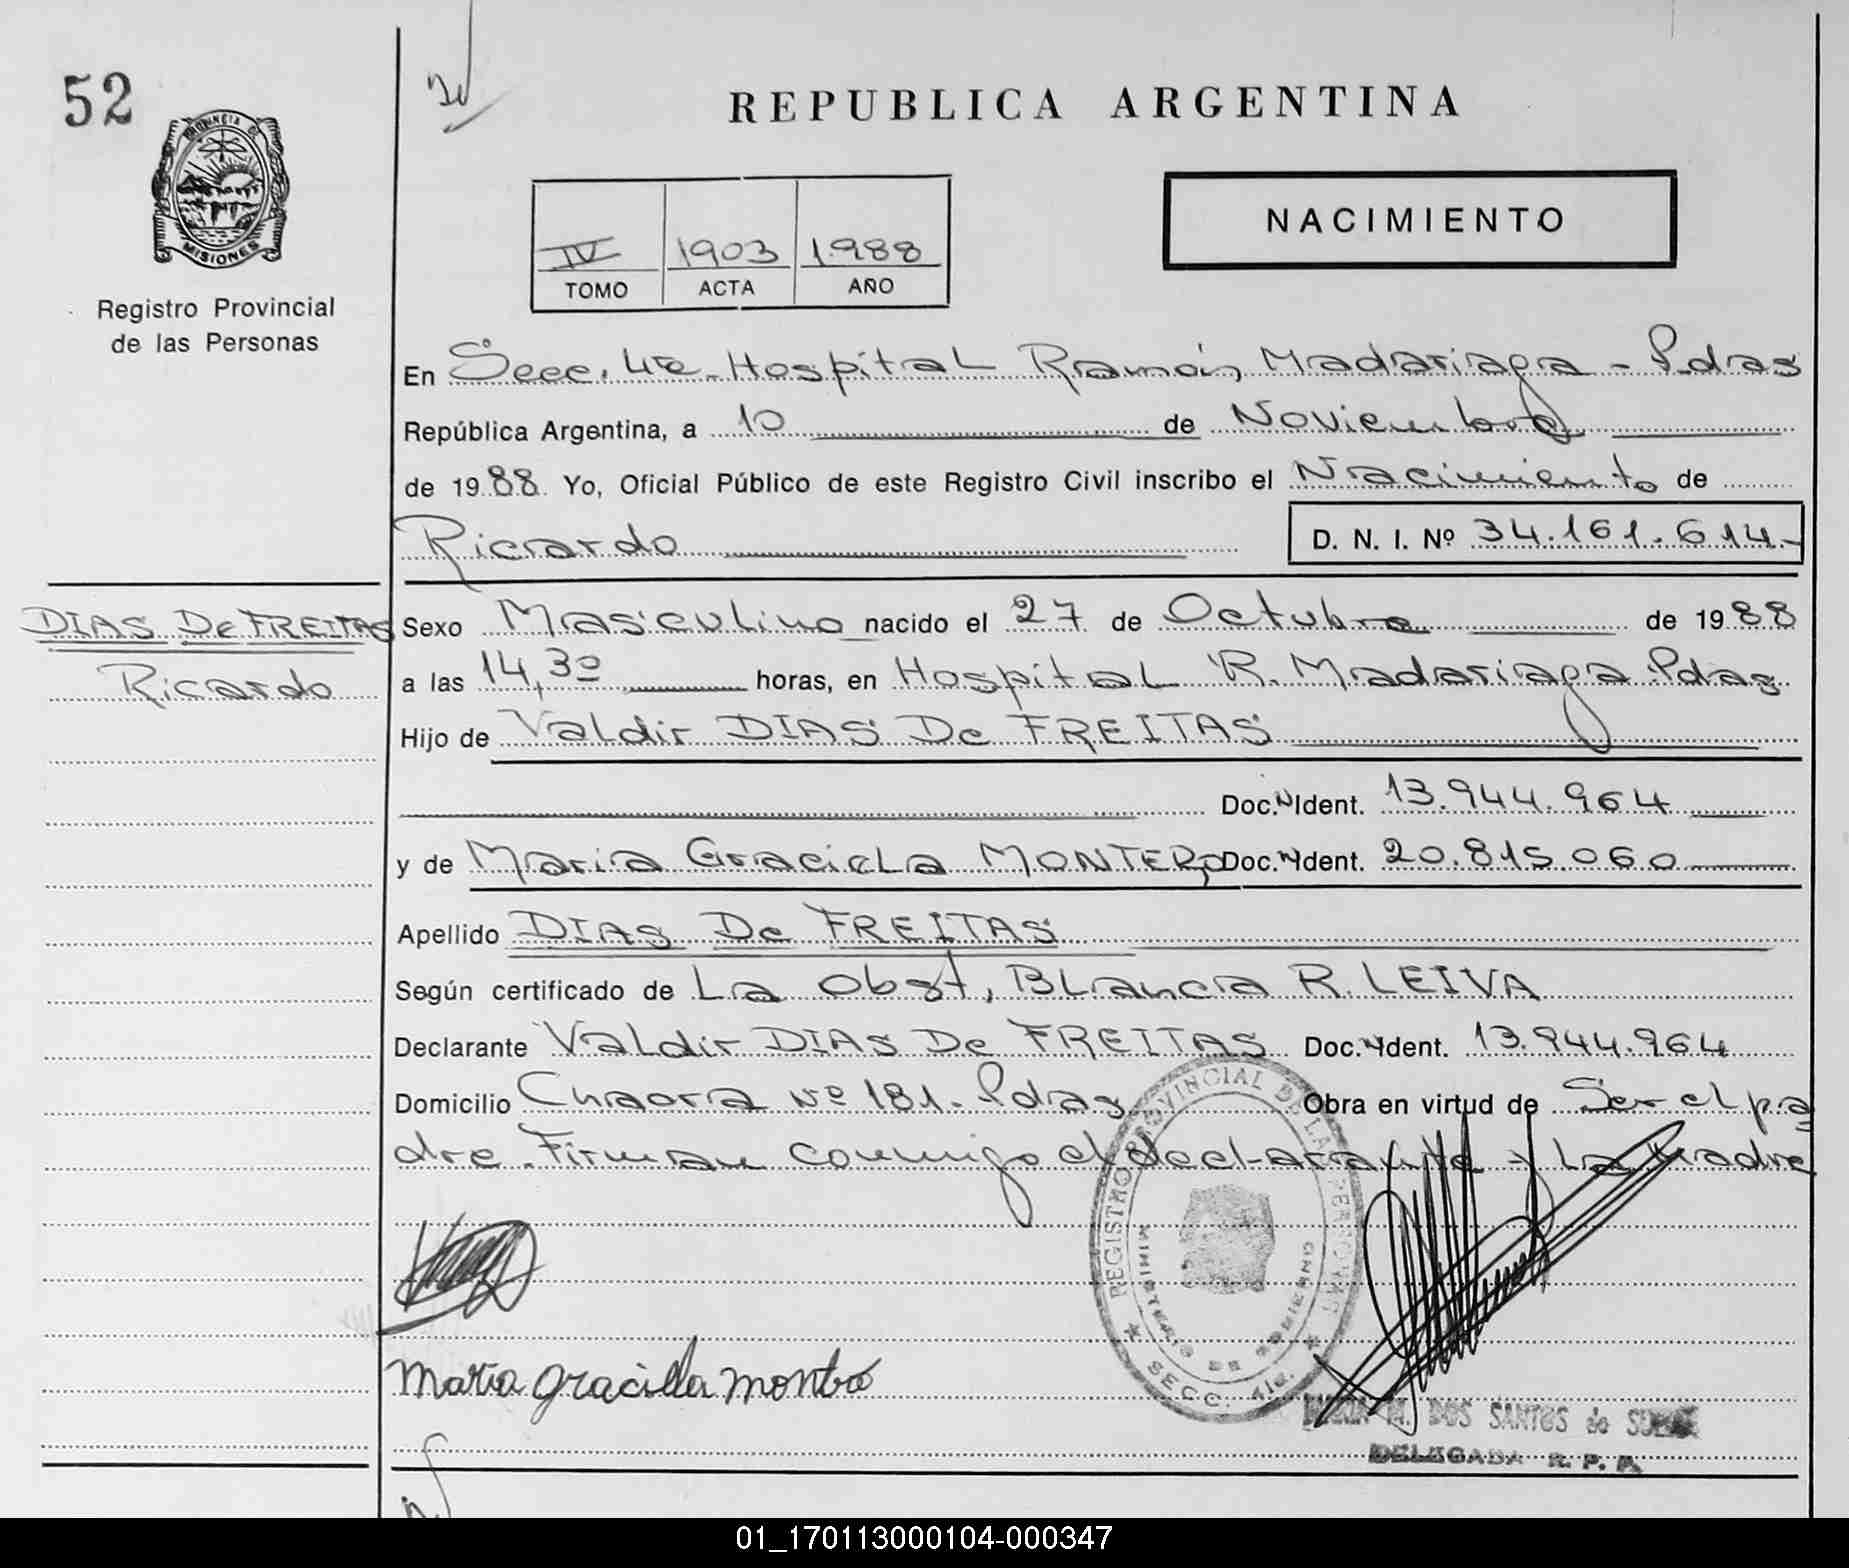 52
REPUBLICA ARGENTINA
PROVINCIA DE
MISIONES
Registro Provincial
de las Personas
IV 1903 1.988
TOMO ACTA AÑO
NACIMIENTO
En Secc. 4ta. Hospital Ramón Madariaga - Pdas
República Argentina, a 10 de Noviembre
de 1988. Yo, Oficial Público de este Registro Civil inscribo el Nacimiento de
Ricardo D. N. I. Nº 34.161.614.-
DIAS De FREITAS
Ricardo
Sexo Masculino nacido el 27 de Octubre de 1988
a las 14,30 horas, en Hospital R. Madariaga Pdas
Hijo de Valdir DIAS De FREITAS
Doc. Ident. 13.944.964
y de Maria Graciela MONTERO Doc. Ident. 20.815.060
Apellido DIAS De FREITAS
Según certificado de La Obst, Blanca R. LEIVA
Declarante Valdir DIAS De FREITAS Doc. Ident. 13.944.964
Domicilio Chacra Nº 181. Pdas Obra en virtud de Ser el pa
dre. Firman conmigo el declarante y La Madre
REGISTRO PROVINCIAL DE LAS PERSONAS
MINISTERIO DE GOBIERNO
SECC. 4ta.
maria gracilla montero
M. DOS SANTOS de
DELEGADA R. P. P.
01_170113000104-000347